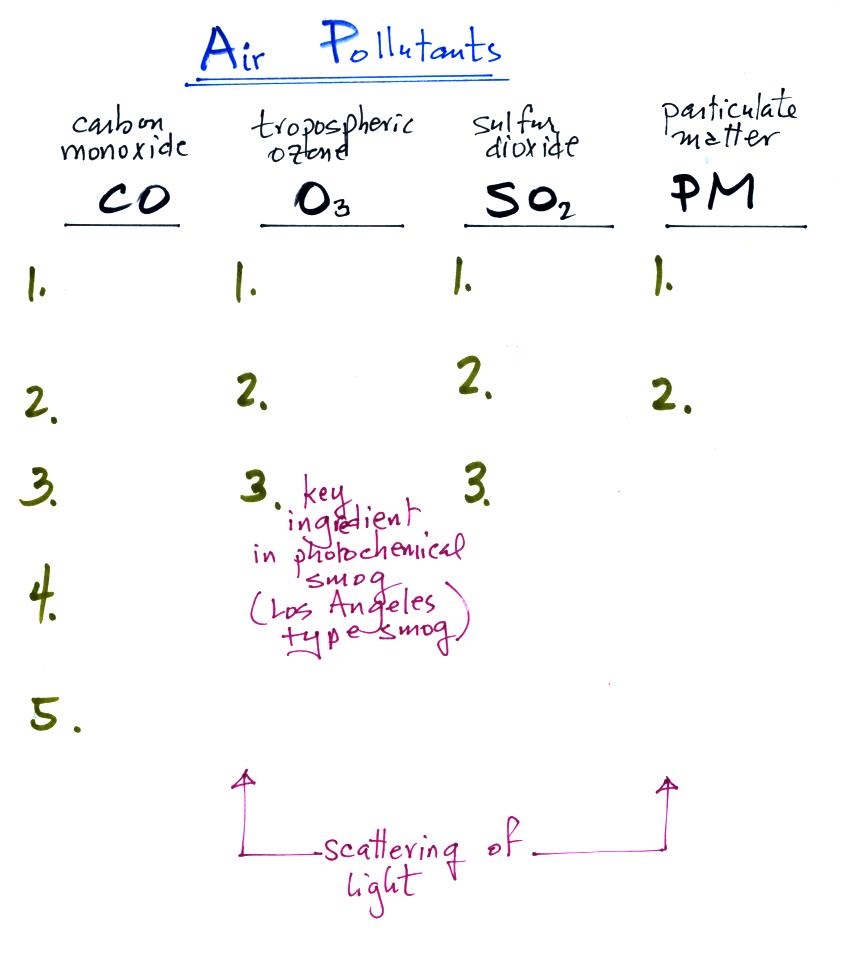 Air Pollutants
carbon monoxide
tropospheric ozone
sulfur dioxide
particulate matter
CO
O3
SO2
PM
1.
1.
1.
1.
2.
2.
2.
2.
3.
3. key
ingredient
in photochemical
smog
(Los Angeles
type smog)
3.
4.
5.
scattering of
light